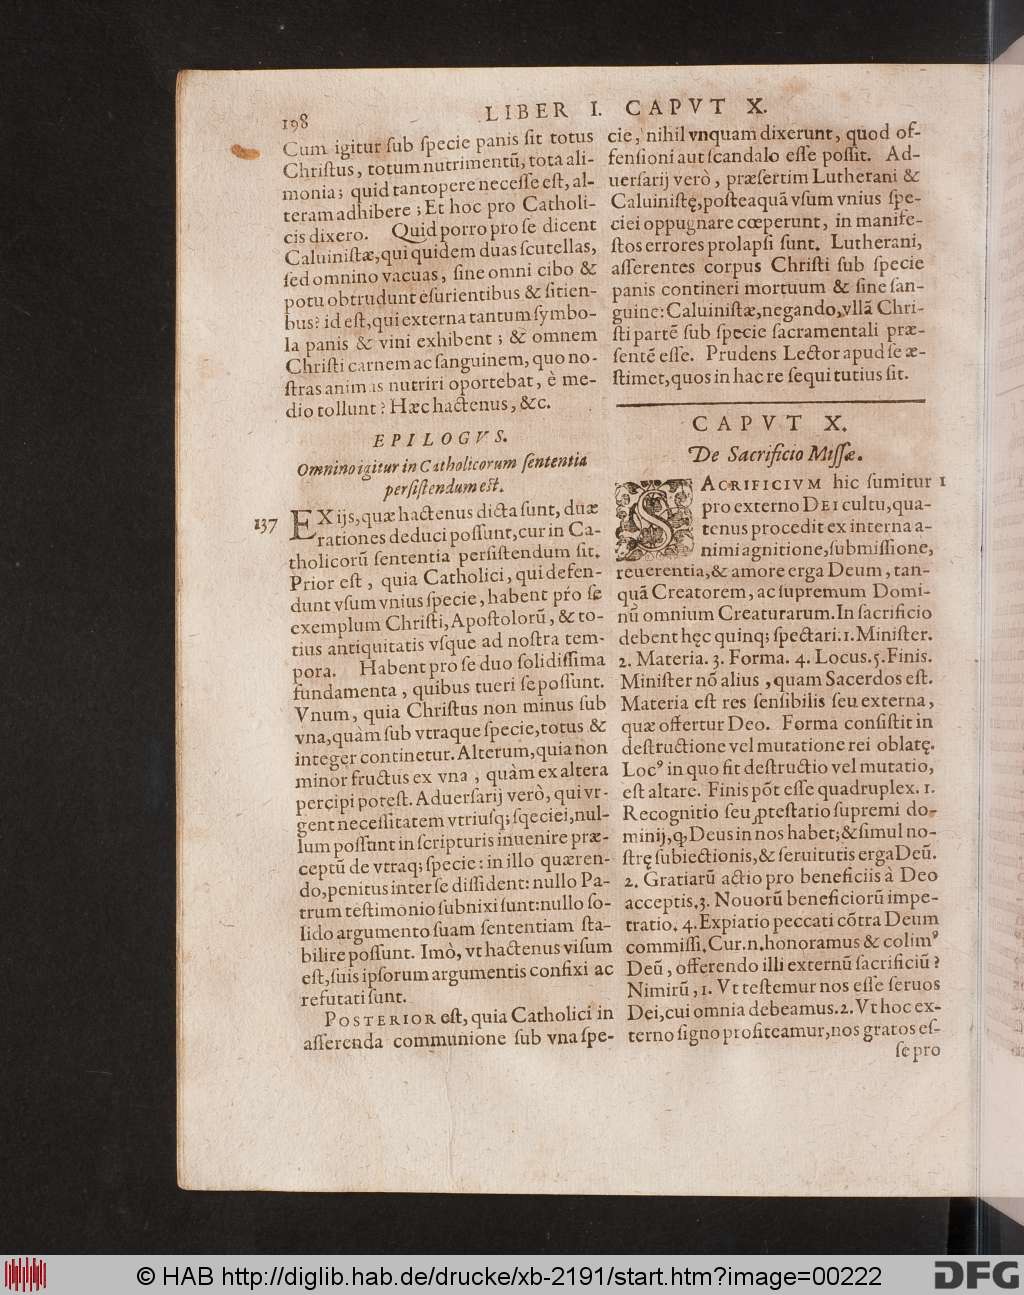 198
LIBER I. CAPVT X.
Cum igitur ſub ſpecie panis ſit totus
Chriſtus, totum nutrimentũ, tota ali-
monia; quid tantopere neceſſe eſt, al-
teram adhibere; Et hoc pro Catholi-
cis dixero. Quid porro pro ſe dicent
Caluiniſtæ, qui quidem duas ſcutellas,
ſed omnino vacuas, ſine omni cibo &
potu obtrudunt eſurientibus & ſitien-
bus? id eſt, qui externa tantum ſymbo-
la panis & vini exhibent; & omnem
Chriſti carnem ac ſanguinem, quo no-
ſtras animas nutriri oportebat, è me-
dio tollunt? Hæc hactenus, &c.
EPILOGVS.
Omnino igitur in Catholicorum ſententia
perſiſtendum est.
137
EX ijs, quæ hactenus dicta ſunt, duæ
rationes deduci poſſunt, cur in Ca-
tholicorũ ſententia perſiſtendum ſit.
Prior eſt, quia Catholici, qui defen-
dunt vſum vnius ſpecie, habent pro ſe
exemplum Chriſti, Apoſtolorũ, & to-
tius antiquitatis vſque ad noſtra tem-
pora. Habent pro ſe duo ſolidiſſima
fundamenta, quibus tueri ſe poſſunt.
Vnum, quia Chriſtus non minus ſub
vna, quàm ſub vtraque ſpecie, totus &
integer continetur. Alterum, quia non
minor fructus ex vna, quàm ex altera
percipi poteſt. Aduerſarij verò, qui vr-
gent neceſſitatem vtriuſq; ſqeciei, nul-
lum poſſunt in ſcripturis inuenire præ-
ceptũ de vtraq; ſpecie: in illo quæren-
do, penitus inter ſe diſſident: nullo Pa-
trum teſtimonio ſubnixi ſunt: nullo ſo-
lido argumento ſuam ſententiam ſta-
bilire poſſunt. Imò, vt hactenus viſum
eſt, ſuis ipſorum argumentis confixi ac
refutati ſunt.
POSTERIOR eſt, quia Catholici in
aſſerenda communione ſub vna ſpe-
cie, nihil vnquam dixerunt, quod of-
fenſioni aut ſcandalo eſſe poſſit. Ad-
uerſarij verò, præſertim Lutherani &
Caluiniſtę, poſteaquã vſum vnius ſpe-
ciei oppugnare cœperunt, in manife-
ſtos errores prolapſi ſunt. Lutherani,
aſſerentes corpus Chriſti ſub ſpecie
panis contineri mortuum & ſine ſan-
guine: Caluiniſtæ, negando, vllã Chri-
ſti partẽ ſub ſpecie ſacramentali præ-
ſentẽ eſſe. Prudens Lector apud ſe æ-
ſtimet, quos in hac re ſequi tutius ſit.
CAPVT X.
De Sacrificio Miſſæ.
SACRIFICIVM hic ſumitur 1
pro externo DEI cultu, qua-
tenus procedit ex interna a-
nimi agnitione, ſubmiſſione,
reuerentia, & amore erga Deum, tan-
quã Creatorem, ac ſupremum Domi-
nũ omnium Creaturarum. In ſacrificio
debent hęc quinq; ſpectari. 1. Miniſter.
2. Materia. 3. Forma. 4. Locus. 5. Finis.
Miniſter nõ alius, quam Sacerdos eſt.
Materia eſt res ſenſibilis ſeu externa,
quæ offertur Deo. Forma conſiſtit in
deſtructione vel mutatione rei oblatę.
Locꝰ in quo fit deſtructio vel mutatio,
eſt altare. Finis põt eſſe quadruplex. 1.
Recognitio ſeu ꝓteſtatio ſupremi do-
minij, ꝙ Deus in nos habet; & ſimul no-
ſtrę ſubiectionis, & ſeruitutis erga Deũ.
2. Gratiarũ actio pro beneficiis à Deo
acceptis. 3. Nouorũ beneficiorũ impe-
tratio. 4. Expiatio peccati cõtra Deum
commiſſi. Cur. n. honoramus & colimꝰ
Deũ, offerendo illi externũ ſacrificiũ?
Nimirũ, 1. Vt teſtemur nos eſſe ſeruos
Dei, cui omnia debeamus. 2. Vt hoc ex-
terno ſigno profiteamur, nos gratos eſ-
ſe pro
© HAB http://diglib.hab.de/drucke/xb-2191/start.htm?image=00222
DFG